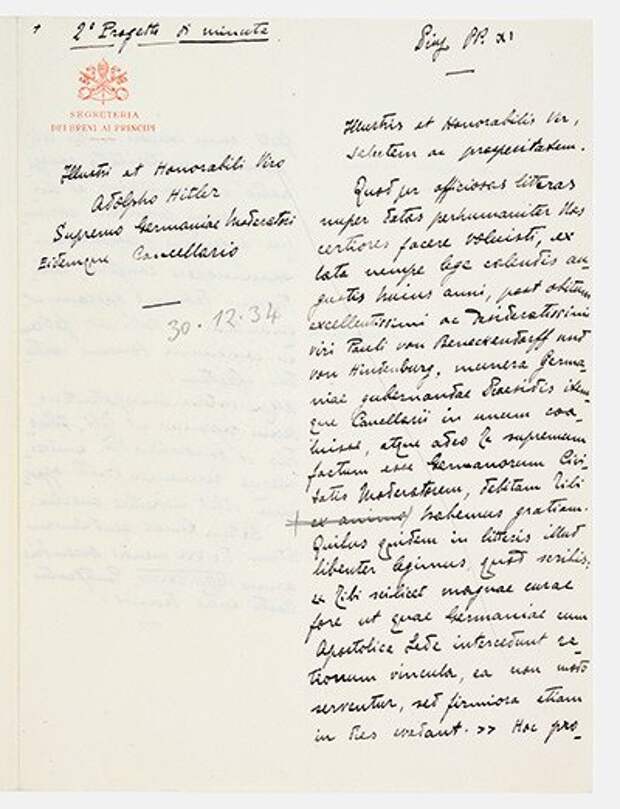 2° Progetto di minuta
SEGRETERIA
DEI BREVI AI PRINCIPI
Illustri et Honorabili Viro
Adolpho Hitler
Supremo Germaniae Moderatori
Eidemque Cancellario
30.12.34
Pius PP. XI
Illustris et Honorabilis Vir,
salutem ac prosperitatem.
Quod per officiosas litteras
nuper datas perhumaniter Nos
certiores facere voluisti, ex
lata nempe lege calendis au-
gustis huius anni, post obitum
excellentissimi ac desideratissimi
viri Pauli von Beneckendorff und
von Hindenburg, munera Germa-
niae gubernandae Praesidis item-
que Cancellarii in unum coa-
luisse, atque adeo Te supremum
factum esse Germanorum Civi-
tatis Moderatorem, debitam Tibi
ex animo habemus gratiam.
Quibus quidem in litteris illud
libenter legimus quod scribis:
Tibi scilicet magnae curae
fore ut quae Germaniae cum
Apostolica Sede intercedunt ne-
cessitudinum vincula, ea non modo
serventur, sed firmiora etiam
in dies evadant. >> Hoc pro-